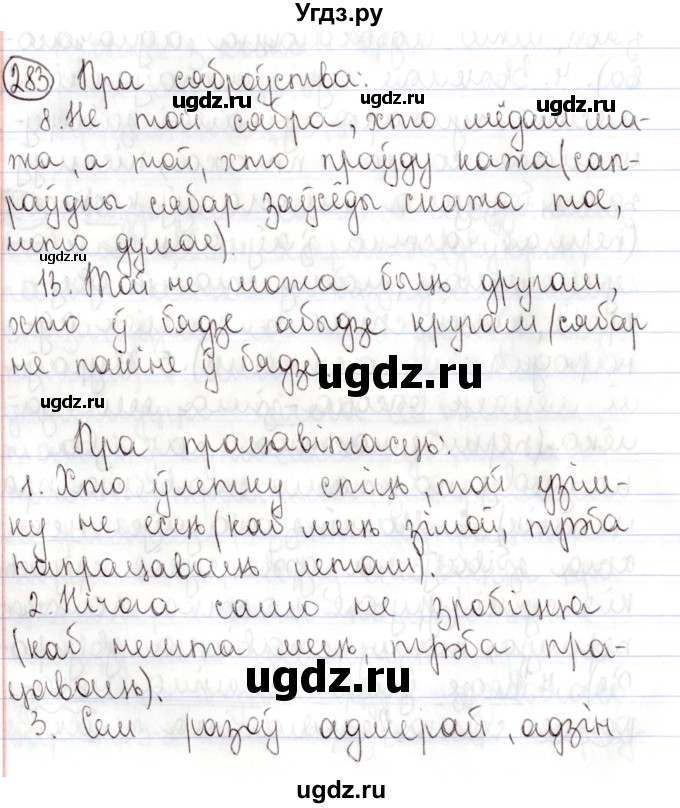 Угдз.ру
283 Пра сяброўства:
ugdz.ru ugdz.ru ugdz.ru
8. Не той сябра, хто мёдам ма-
жа, а той, хто праўду кажа (сап-
раўдны сябар заўсёды скажа тое,
што думае).
ugdz.ru
13. Той не можа быць другам,
хто ў бядзе абыдзе кругам (сябар
не пакіне ў бядзе)
ugdz.ru
ugdz.ru
Пра працавітасць:
1. Хто ўлетку спіць, той узім-
ку не есць (каб есць зімой, трэба
папрацаваць летам).
ugdz.ru
2. Нічога само не зробіцца
(каб нешта мець, трэба пра-
цаваць).
ugdz.ru
3. Сем разоў адмерай, адзін
ugdz.ru
ugdz.ru